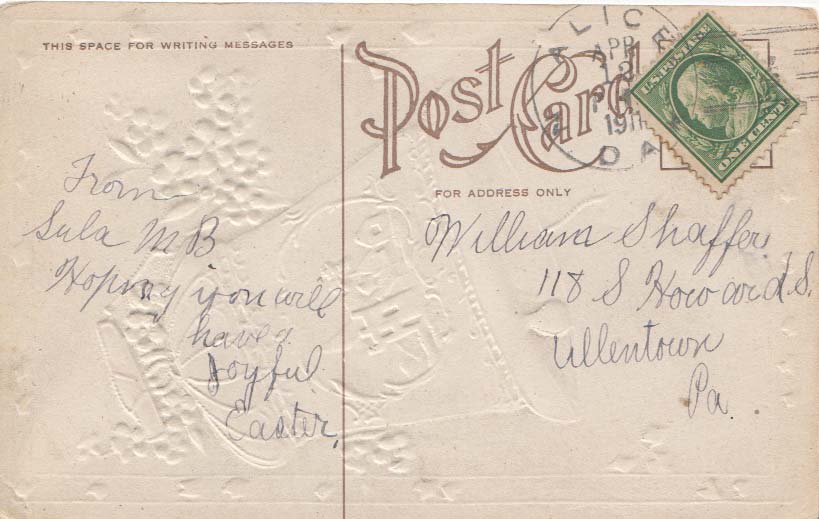 THIS SPACE FOR WRITING MESSAGES
Post Card
FOR ADDRESS ONLY
ALICE
APR
13
1911
U.S. POSTAGE
ONE CENT
From
Sula M B
Hoping you will
have a
Joyful
Easter,
William Shaffer
118 S Howard S.
Allentown
Pa.